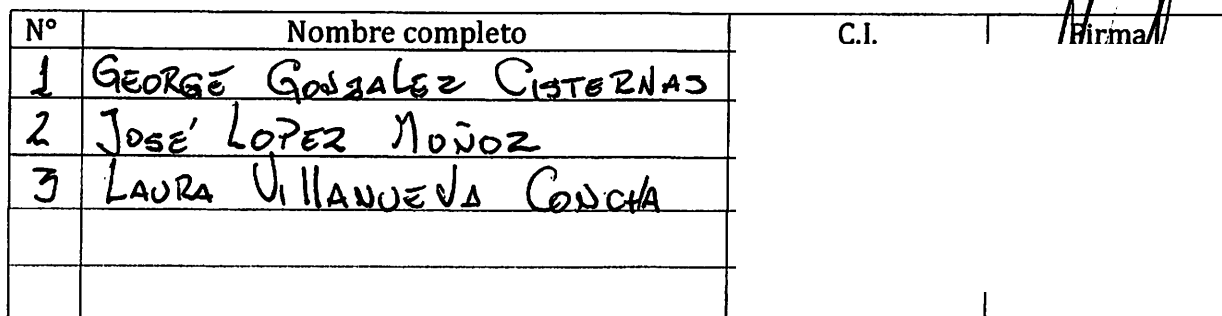 N° Nombre completo C.I. Firma
1 GEORGE GONZALEZ CISTERNAS
2 JOSÉ LOPEZ MUÑOZ
3 LAURA VILLANUEVA CONCHA